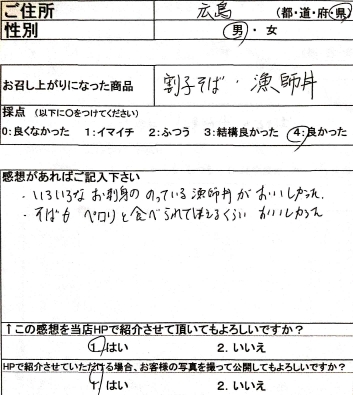 ご住所 広島 (都・道・府・県)
性別 男・女
お召し上がりになった商品 割子そば・漁師丼
採点 (以下に○をつけてください)
0:良くなかった 1:イマイチ 2:ふつう 3:結構良かった 4:良かった
感想があればご記入下さい
・いろいろなお刺身ののっている漁師丼がおいしかった。
・そばもペロリと食べられてしまえるくらいおいしかった
↑この感想を当店HPで紹介させて頂いてもよろしいですか?
1.はい 2.いいえ
HPで紹介させていただける場合、お客様の写真を撮って公開してもよろしいですか?
1.はい 2.いいえ